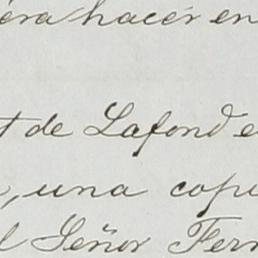 era hacer en
t de Lafond e
, una copi
l Señor Fern